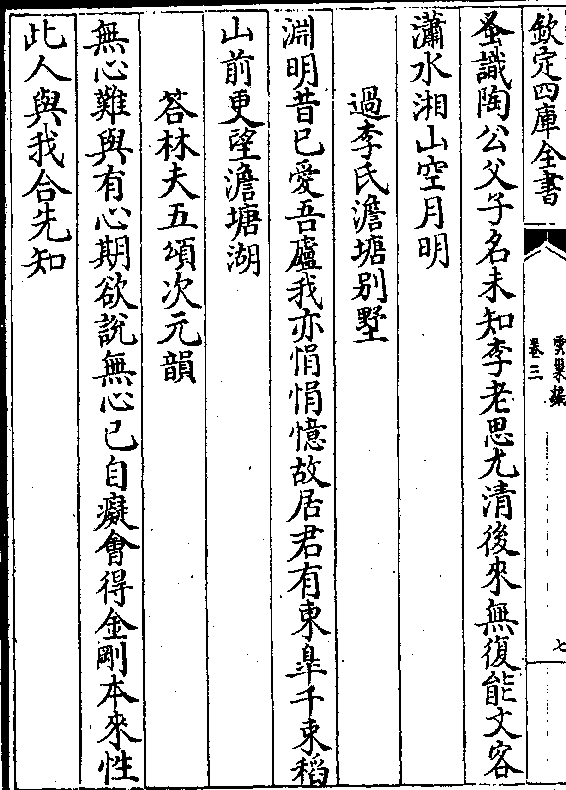 欽定四庫全書
雲巢編
卷三
七
蚤識陶公父子名未知李老思尤清後來無復能文客
瀟水湘山空月明
過李氏澹塘别墅
淵明昔已愛吾廬我亦悁悁憶故居君有東臯千束稻
山前更望澹塘湖
荅林夫五頌次元韻
無心難與有心期欲説無心已自癡會得金剛本來性
此人與我合先知